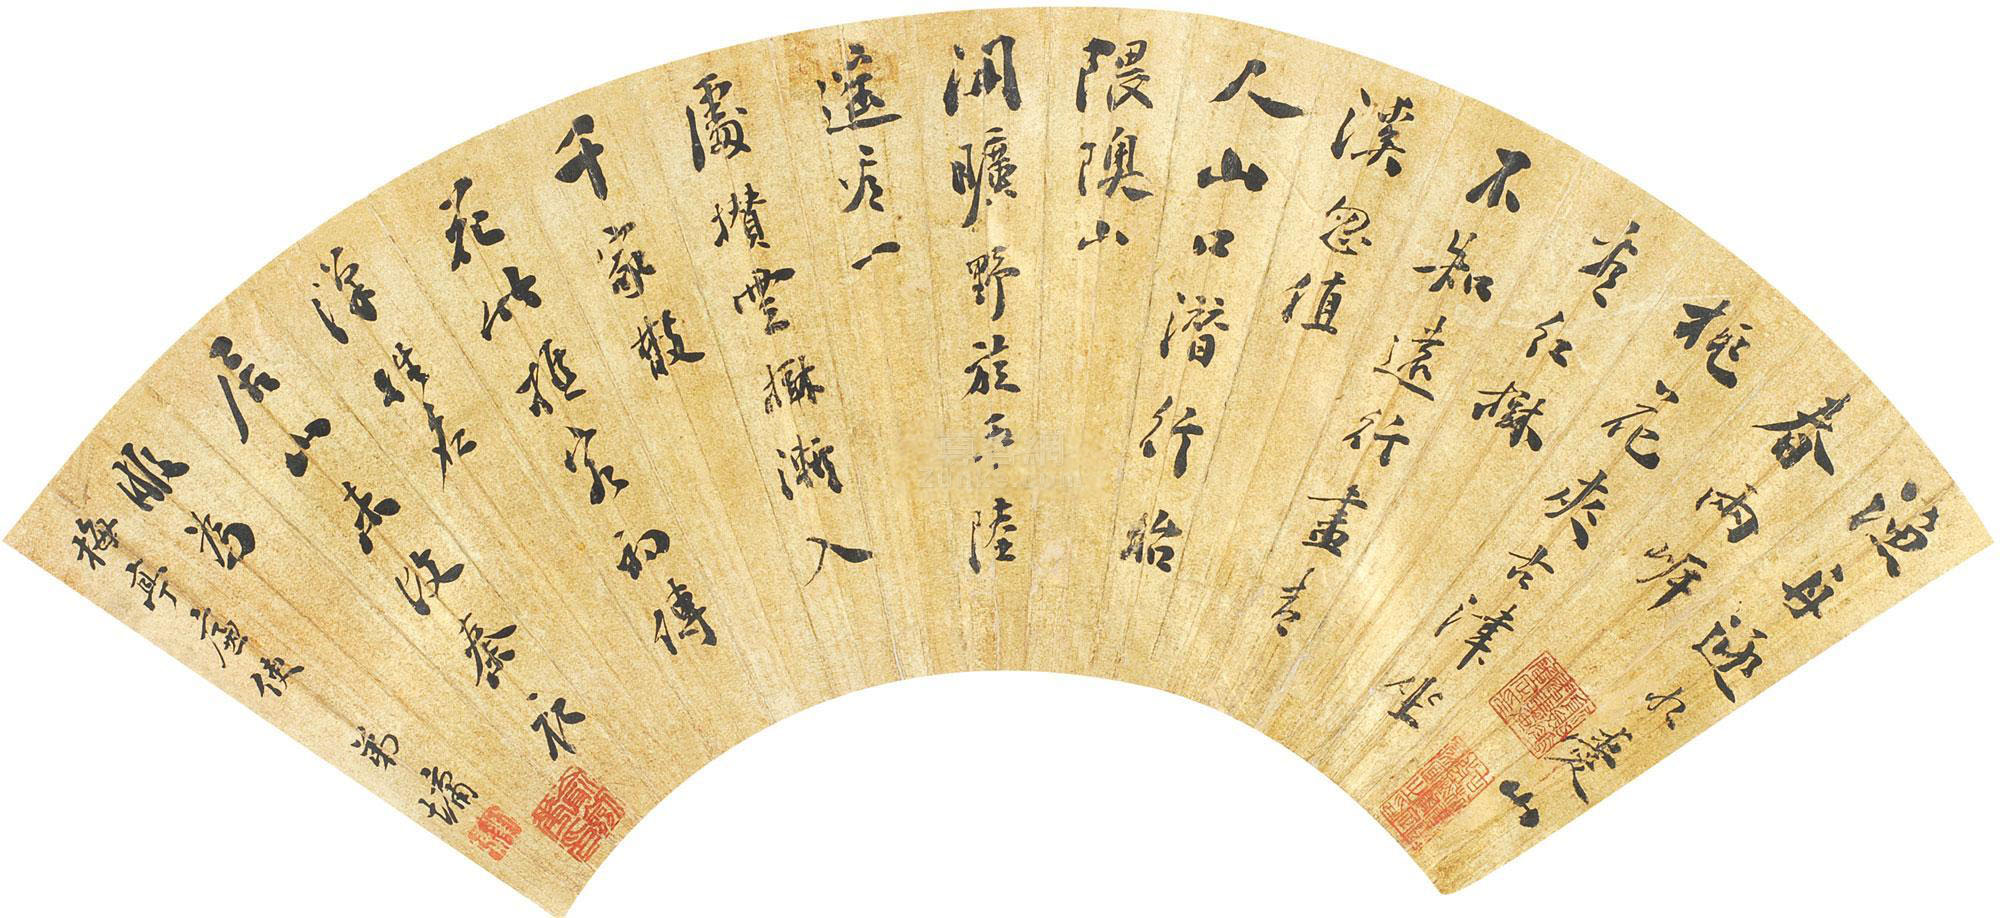 漁舟逐水愛山
春兩岸
桃花夾古津坐
看紅樹
不知遠行盡青
溪忽值
人山口潛行始
隈隩山
開曠野旋平陸
遙看一
處攢雲樹漸入
千家散
花竹樵客初傳
漢姓名
居人未改秦衣
服為
梅亭廉使 弟墉